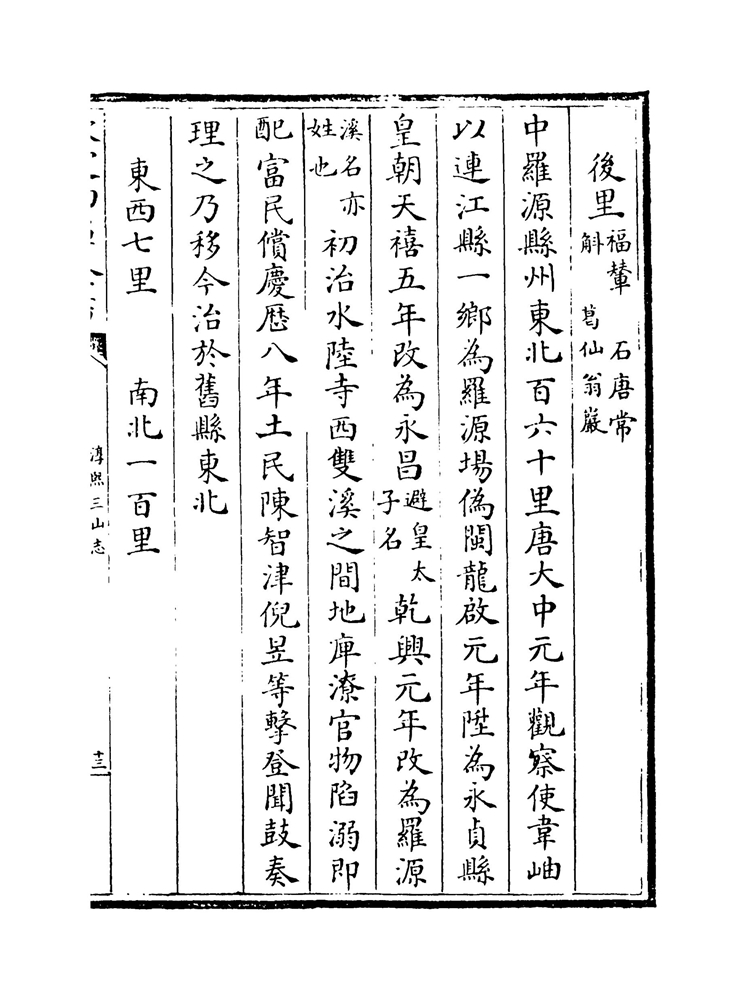 後里福輦　石唐常
斛　葛仙翁巖
中羅源縣州東北百六十里唐大中元年觀察使韋岫
以連江縣一鄉為羅源場偽閩龍啟元年陞為永貞縣
皇朝天禧五年改為永昌避皇太
子名乾興元年改為羅源
溪名亦
姓也初治水陸寺西雙溪之間地庳潦官物陷溺即
配富民償慶厯八年土民陳智津倪昱等擊登聞鼓奏
理之乃移今治於舊縣東北
東西七里　南北一百里
淳熙三山志
十三